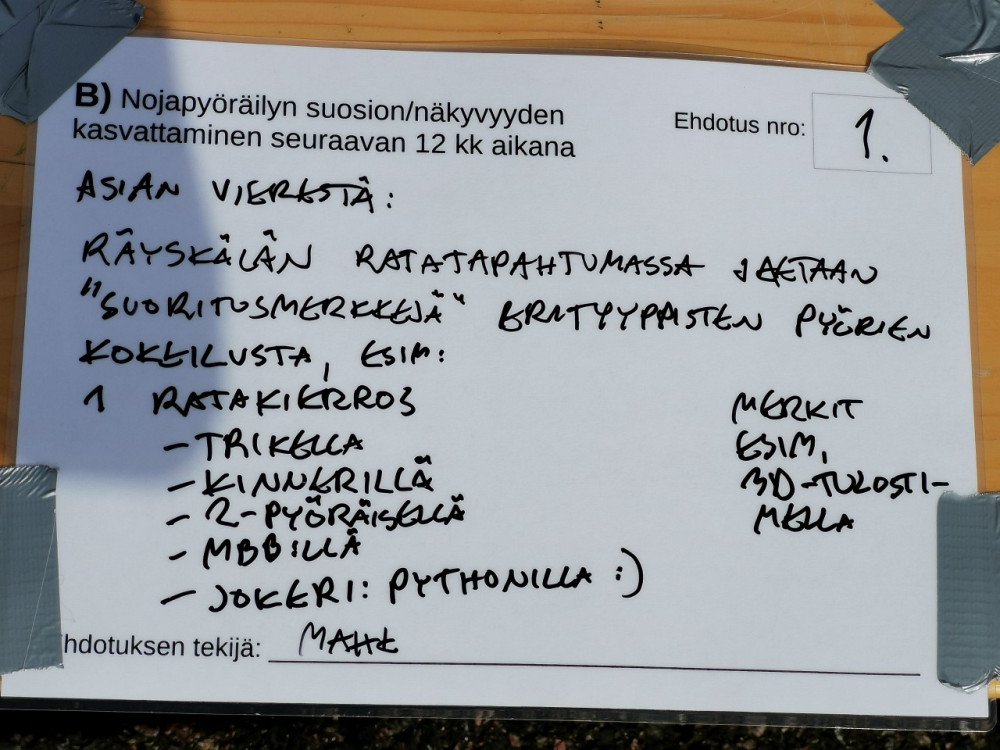 B) Nojapyöräilyn suosion/näkyvyyden
kasvattaminen seuraavan 12 kk aikana
Ehdotus nro: 1.
ASIAN VIERESTÄ:
RÄYSKÄLÄN RATATAPAHTUMASSA JAETAAN
"SUORITUSMERKKEJÄ" ERITYYPPISTEN PYÖRIEN
KOKEILUSTA, ESIM:
1 RATAKIERROS
- TRIKELLA
- KINNERILLÄ
- 2-PYÖRÄISELLÄ
- MBBILLÄ
- JOKERI: PYTHONILLA :)
MERKIT
ESIM.
3D-TULOSTI-
MELLA
hdotuksen tekijä: MAHE